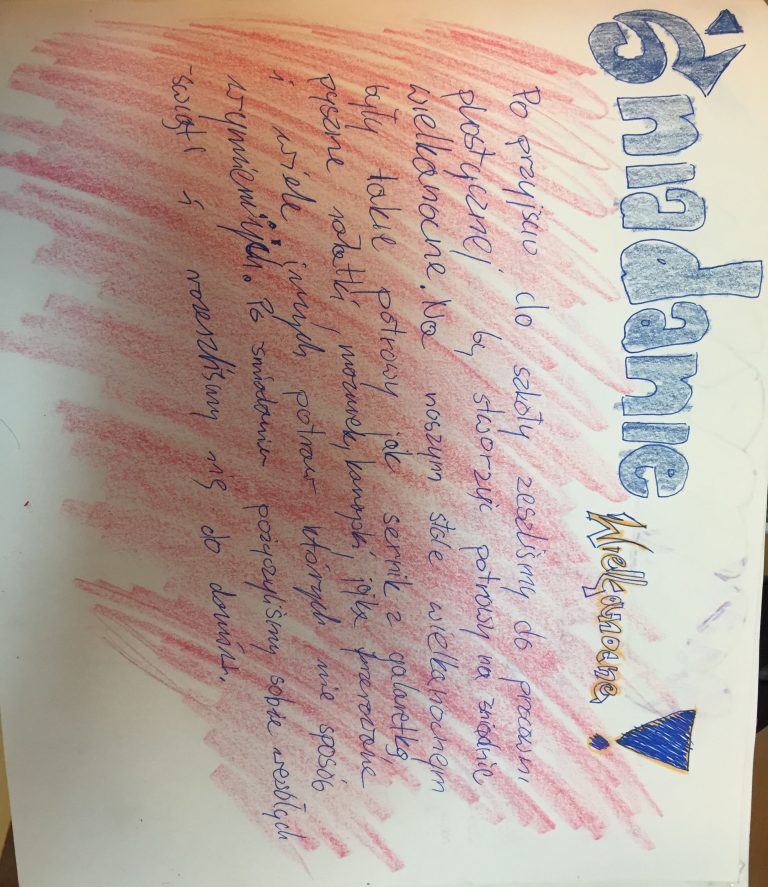 Śniadanie Wielkanocne!
Po przyjściu do szkoły zeszliśmy do pracowni
plastycznej by stworzyć potrawy na śniadanie
wielkanocne. Na naszym stole wielkanocnym
były takie potrawy jak sernik z galaretką
pyszne sałatki, mazurek, kanapki, jajka faszerowane
i wiele innych potraw których nie sposób
wymienić. Po śniadaniu pożyczyliśmy sobie wesołych
świąt i rozeszliśmy się do domów.